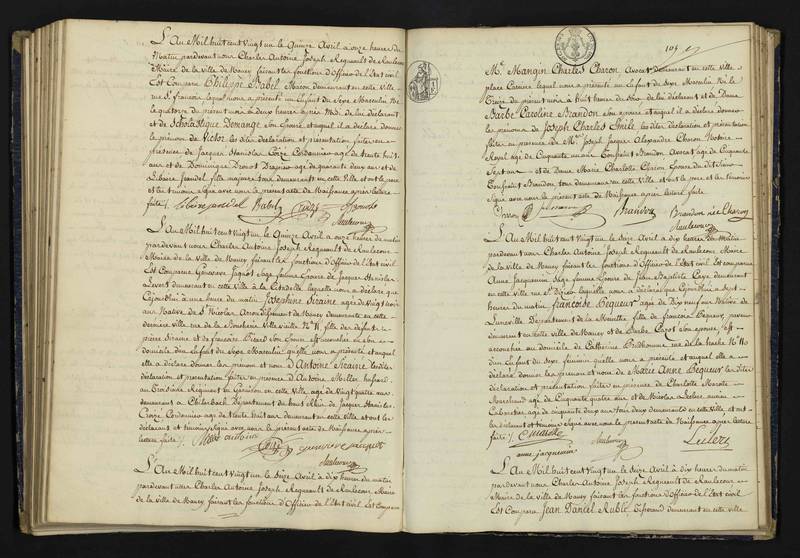 L'An Mil huit cent vingt un le Quinze Avril a onze heures du
Matin pardevant nous Charles Antoine Joseph Regneault de Raulecourt
Maire de la ville de Nancy faisant les fonctions d'Officier de l'Etat civil
Est Comparu Philippe Babel Macon demeurant en cette ville
rue St françois lequel nous a présenté un Enfant du Sexe Masculin Né
le quatorze du présent mois à deux heures après Midi de lui déclarant
et de Scholastique Demange son Epouse et auquel il a déclaré donner
le prénom de Victor les dites déclaration et présentation faites en
présence de Jacques Stanislas Coizé Cordonnier agé de trente huit
ans et de Dominique agé de quarante deux ans et de
fille majeure tous demeurant en cette Ville et ont le père
et les témoins signé avec nous le présent acte de Naissance après lecture
faite /.
L'An Mil huit cent Vingt un le Quinze Avril a onze heures du matin
pardevant nous Charles Antoine Joseph Regneault de Raulecourt
Maire de la Ville de Nancy faisant les fonctions d'Officier de l'Etat civil
Est Comparue Geneviève Sage femme Epouse de Jacques Stanislas
demeurant en cette ville à la Citadelle laquelle nous a déclaré que
Cejourdhui à une heure du matin Josephine Siraine agée de Vingt trois
ans Native de St Nicolas Arrondissement de Nancy demeurante en cette
dernière ville rue de la Boucherie fille de défunt
Siraine et de françoise son Epouse est accouchée en son
domicile d'un Enfant du Sexe Masculin qu'elle nous a présenté et auquel
elle a déclaré donner les prénom et nom d'Antoine Siraine les dites
déclaration et présentation faites en présence d'Antoine Miller
au Troisième Régiment en Garnison en cette Ville agé de Vingt quatre ans
demeurant à Département du haut Rhin de Jacques Stanislas
Coizé Cordonnier agé de trente huit ans demeurant en cette Ville et ont les
déclarante et témoins signé avec nous le présent acte de Naissance après
lecture faite /.
L'An Mil huit cent vingt un le Seize Avril à dix heures du matin
pardevant nous Charles Antoine Joseph Regneault de Raulecourt Maire
de la Ville de Nancy faisant les fonctions d'Officier de l'Etat civil Est Comparu
105
Mr Mangin Charles Charon Avocat demeurant en cette Ville
place Carrière lequel nous a présenté un Enfant du Sexe Masculin Né le
Treize du présent mois à huit heures du Soir de lui déclarant et de Dame
Barbe Caroline Brandon son Epouse et auquel il a déclaré donner
les prénoms de Joseph Charles Emile les dites déclaration et présentation
faites en présence de Mr Joseph Jacques Alexandre Charon Notaire
Royal agé de Cinquante ans Brandon Avocat agé de Cinquante
Sept ans et de Dame Marie Charlotte Charon Epouse du dit Sieur
Brandon tous demeurant en cette Ville et ont le père et les témoins
signé avec nous le présent acte de Naissance après lecture faite
Brandon Brandon née Charon
L'An Mil huit cent vingt un le Seize Avril à dix heures du matin
pardevant nous Charles Antoine Joseph Regneault de Raulecourt Maire
de la Ville de Nancy faisant les fonctions d'Officier de l'Etat civil Est comparue
Anne Jacquemin Sage femme Epouse de Jean Baptiste Caye demeurant
en cette ville rue St Dizier laquelle nous a déclaré que Cejourdhui à Sept
heures du matin françoise Bequeur agée de Dix neuf ans Native de
Lunéville Département de la Meurthe fille de françois Bequeur
demeurant en cette Ville de Nancy et de Barbe son épouse est
accouchée au domicile de Catherine Prudhomme rue de la hache No 110
d'un Enfant du Sexe feminin qu'elle nous a présenté et auquel elle a
déclaré donner les prénoms et nom de Marie Anne Bequeur les dites
déclaration et présentation faites en présence de Charlotte Marotte
Marchand agé de Cinquante quatre ans et de Nicolas Leclerc
Cabaretier agé de cinquante deux ans tous deux demeurant en cette Ville, et ont
les déclarante et témoins signé avec nous le présent acte de Naissance après lecture
faite /. C marotte Leclerc
anne jacquemin
L'An Mil huit cent vingt un le Seize Avril à dix heures du matin
pardevant nous Charles Antoine Joseph Regneault de Raulecourt
Maire de la Ville de Nancy faisant les fonctions d'Officier de l'Etat civil
Est Comparu Jean Daniel Ruble Tisserand demeurant en cette ville